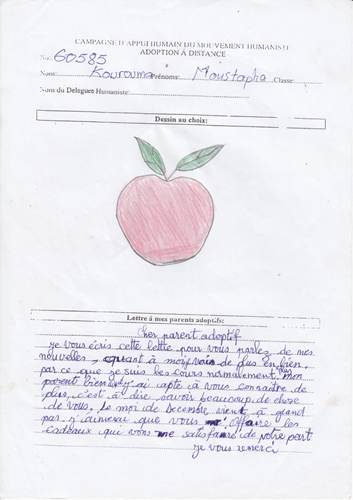 CAMPAGNE D'APPUI HUMAIN DU MOUVEMENT HUMANISTE
ADOPTION À DISTANCE
No: 60585
Nom: Kourouma Prénoms: Moustapha Classe
Nom du Deleguee Humaniste:
Dessin au choix:
Lettre à mes parents adoptifs:
Cher parent adoptif
je vous écris cette lettre pour vous parlez de mes
nouvelles, quant à moi vais de plus en bien,
par ce que je suis les cours normalement. Mon
parent bien j'ai apte à vous connaître de
plus, c'est à dire savoir beaucoup de chose
de vous. Le moi de Decembre vient à grand
pas j'aimerai que vous me Offrire les
cadeaux qui vons me satisfaire de votre part
je vous remerci